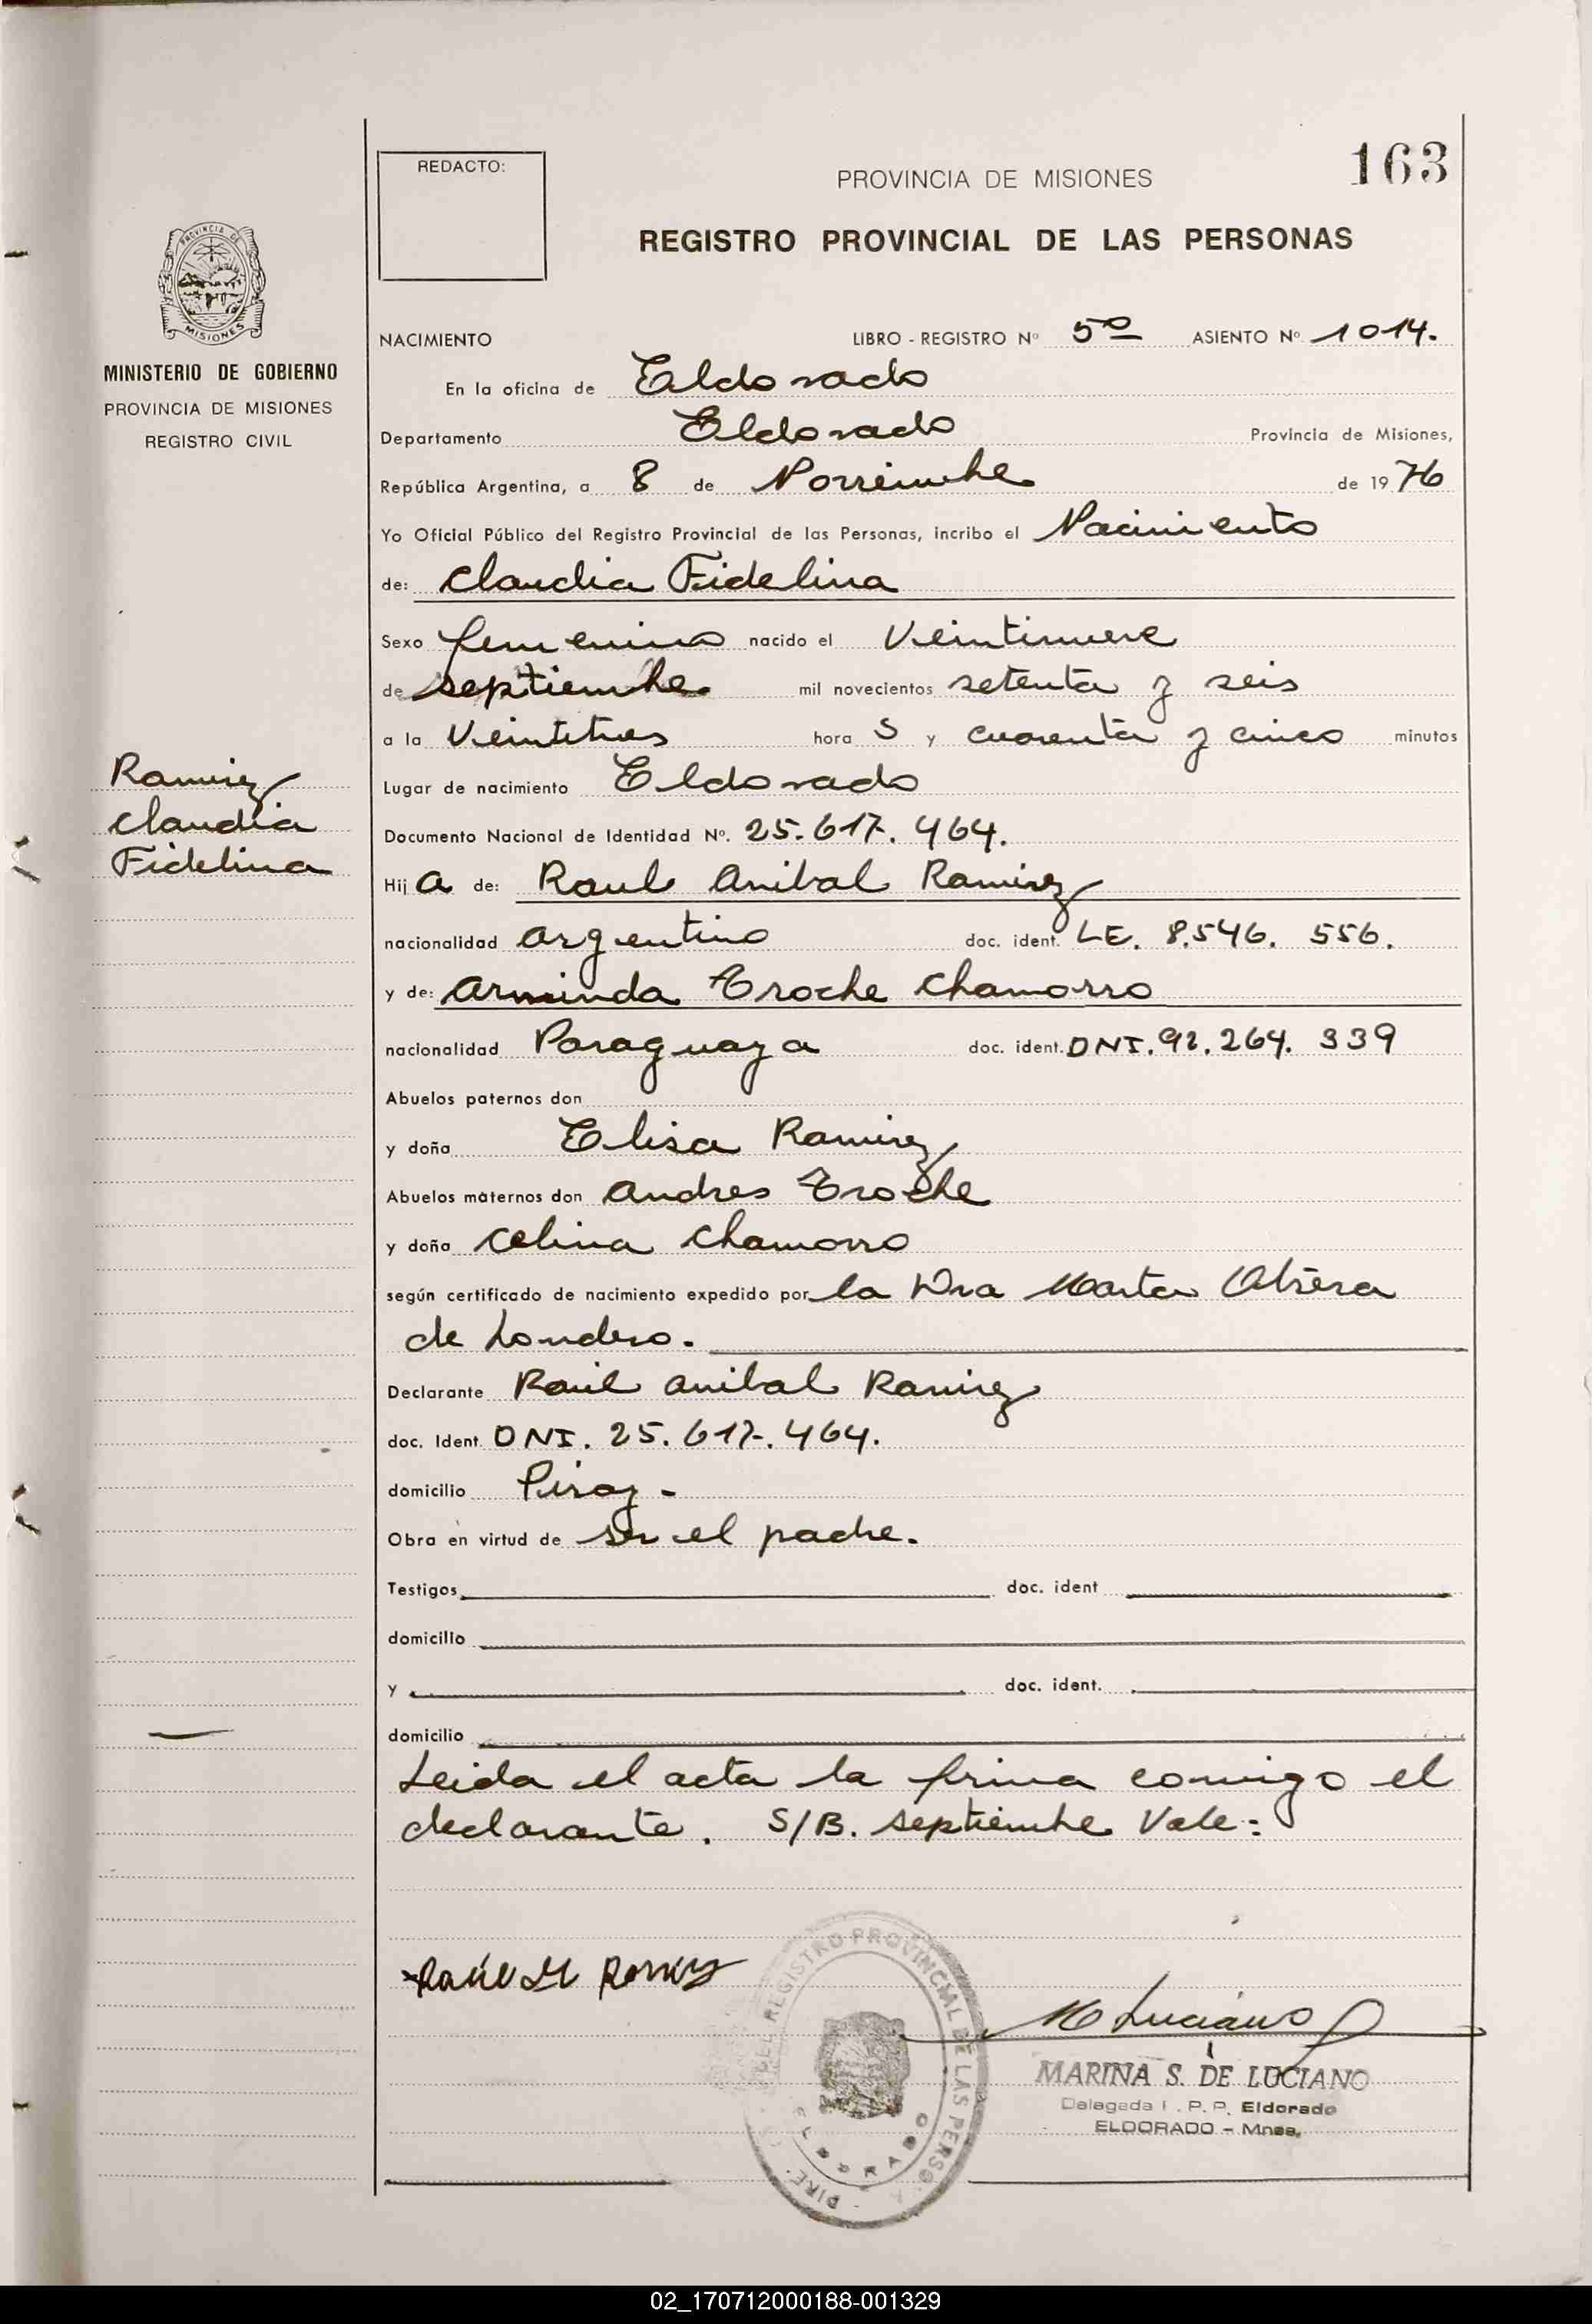 163
REDACTO:
PROVINCIA DE MISIONES
REGISTRO PROVINCIAL DE LAS PERSONAS
PROVINCIA DE
MISIONES
MINISTERIO DE GOBIERNO
PROVINCIA DE MISIONES
REGISTRO CIVIL
NACIMIENTO LIBRO - REGISTRO Nº 5º ASIENTO Nº 1014.
En la oficina de Eldorado
Departamento Eldorado Provincia de Misiones,
República Argentina, a 8 de Noviembre de 1976
Yo Oficial Público del Registro Provincial de las Personas, incribo el Nacimiento
de: Claudia Fidelina
Sexo femenino nacido el Veintinueve
de septiembre. mil novecientos setenta y seis
a la Veintitres hora s y cuarenta y cinco minutos
Ramirez
Claudia
Fidelina
Lugar de nacimiento Eldorado
Documento Nacional de Identidad Nº. 25.617.464.
Hij a de: Raul Anibal Ramirez
nacionalidad argentino doc. ident. LE. 8.546.556.
y de: Arminda Troche Chamorro
nacionalidad Paraguaya doc. ident. DNI. 92.264.339
Abuelos paternos don
y doña Elisa Ramirez
Abuelos maternos don Andres Troche
y doña Celina Chamorro
según certificado de nacimiento expedido por la Dra Marta
de Londero.
Declarante Raúl Anibal Ramirez
doc. Ident. DNI. 25.617.464.
domicilio Piray -
Obra en virtud de ser el padre.
Testigos doc. ident
domicilio
y doc. ident.
domicilio
Leida el acta la firma conmigo el
declarante. S/B. septiembre Vale:
M Luciano
MARINA S. DE LUCIANO
Delegada P. P. Eldorado
ELDORADO - Mnes.
REGISTRO PROVINCIAL DE LAS PERSO
ELDORADO
02_170712000188-001329